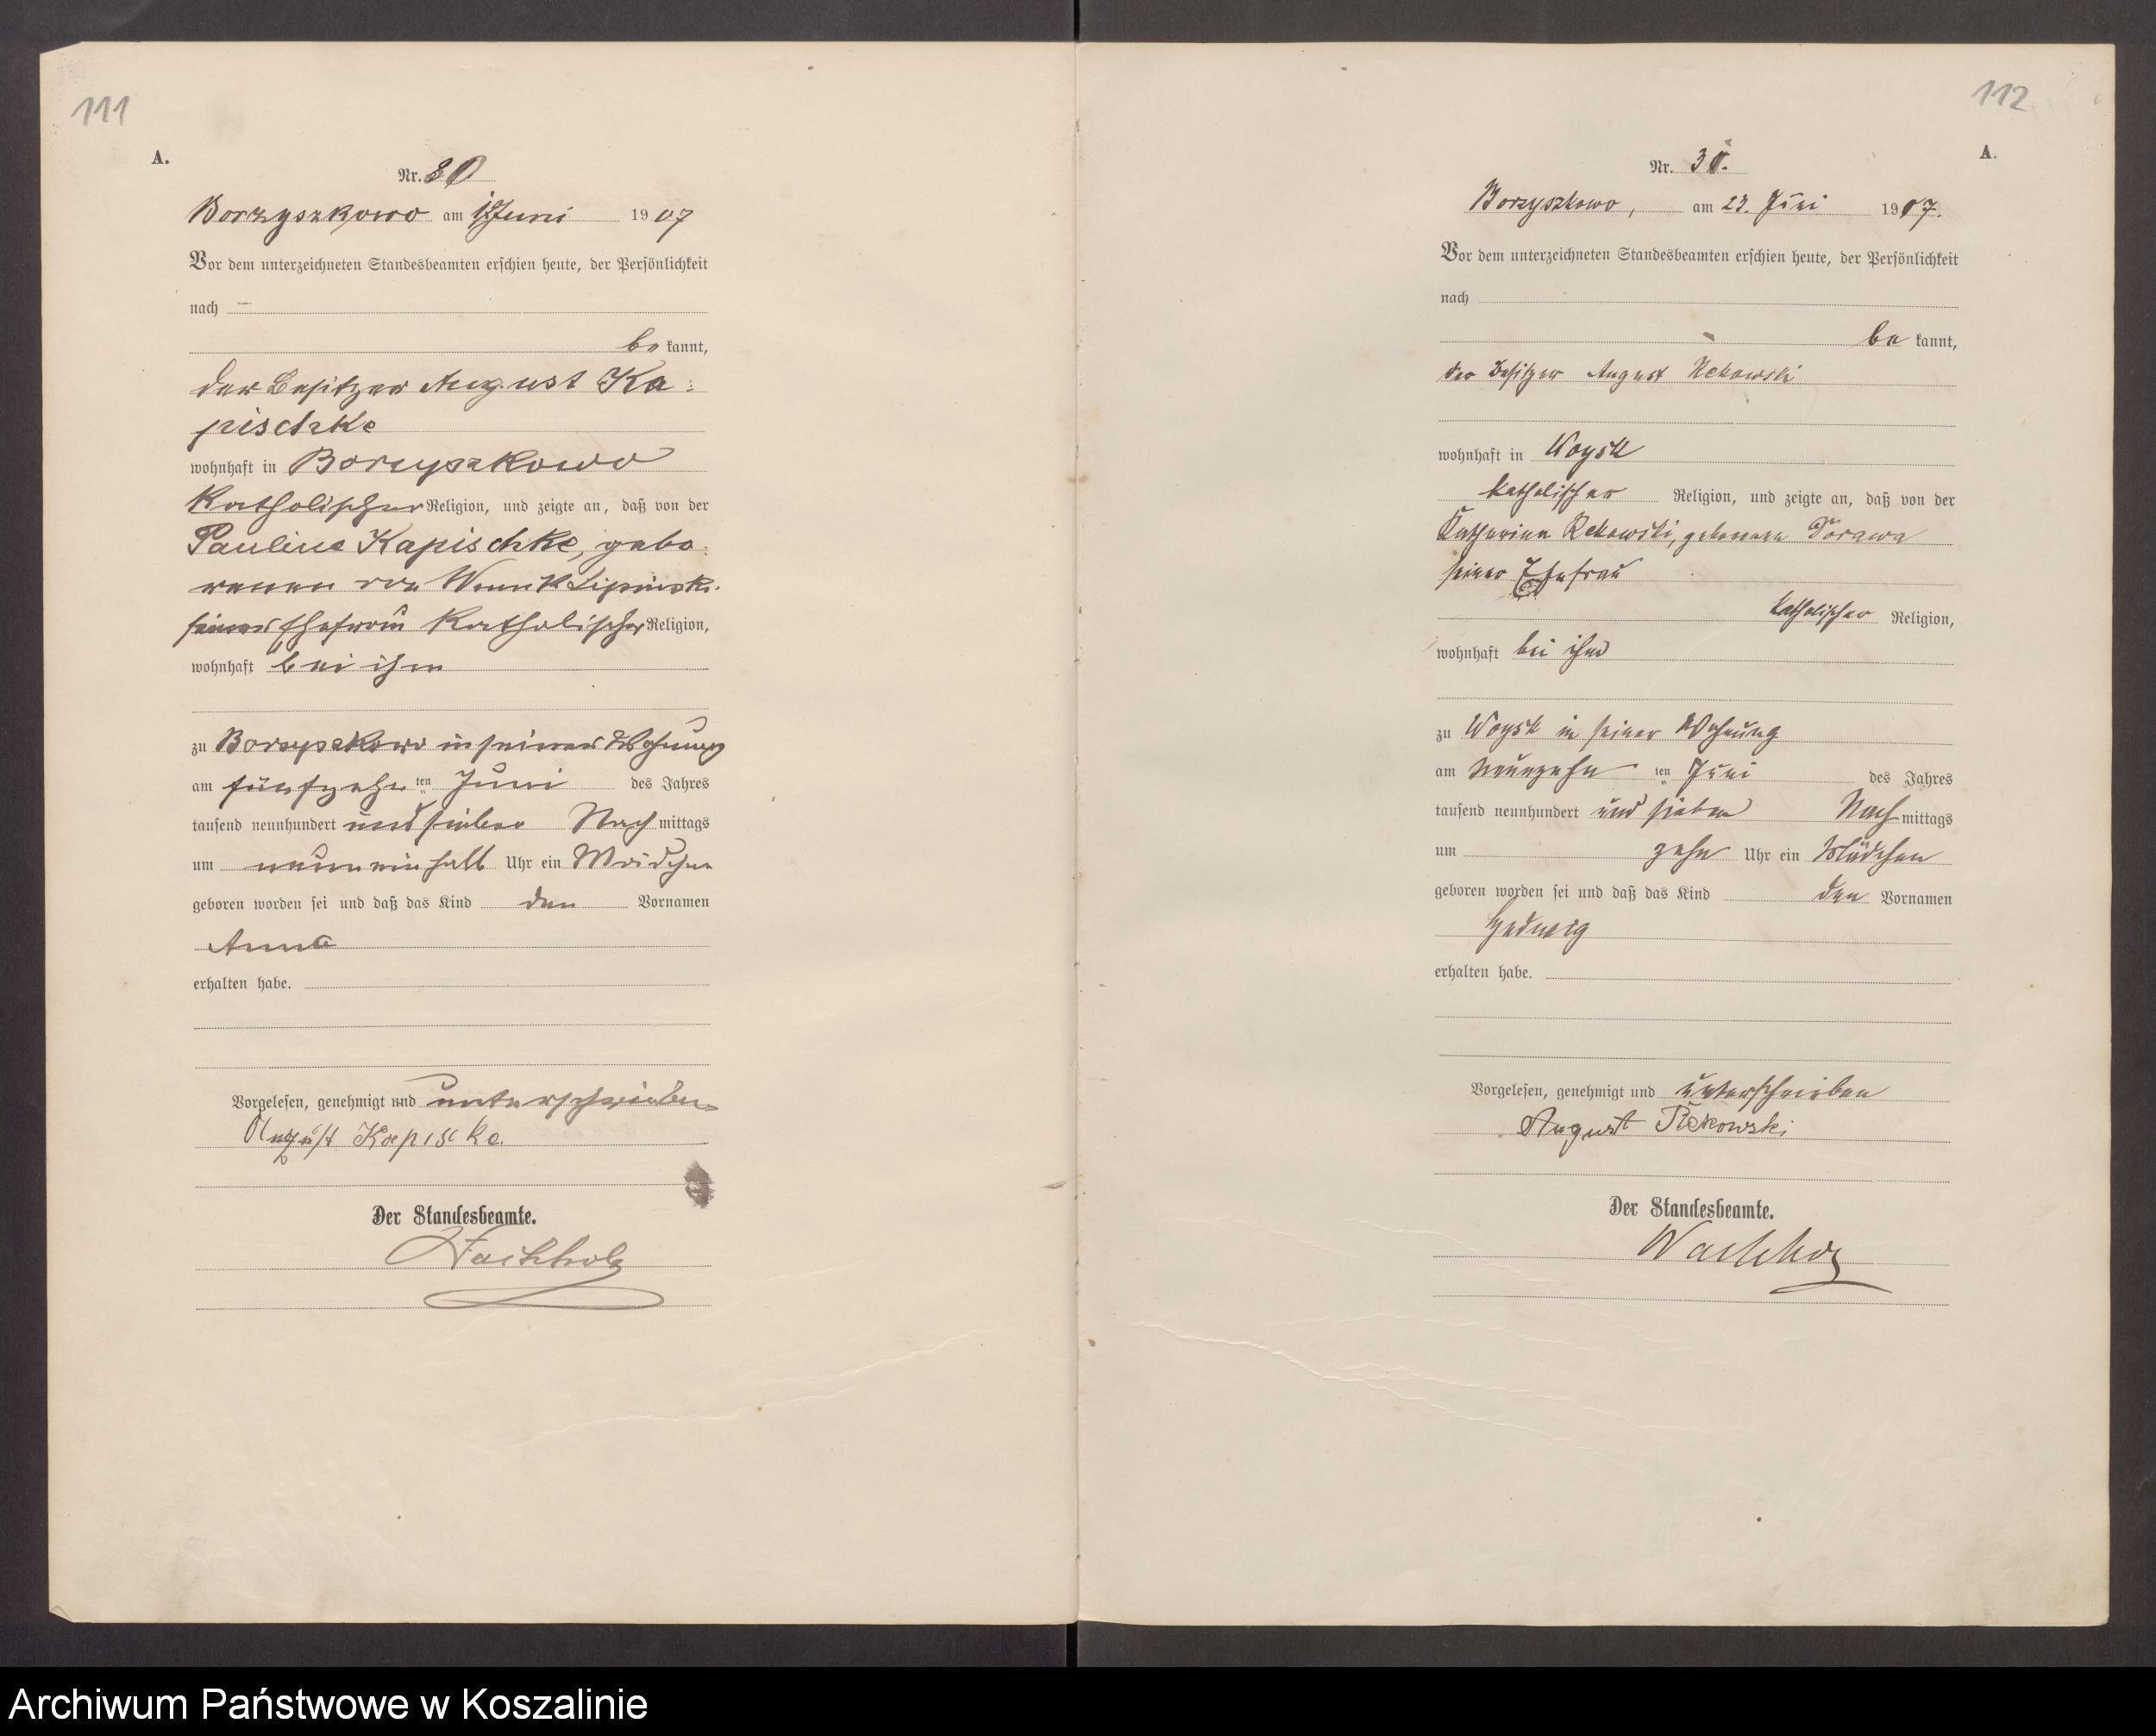 111
A.
Nr. 30
Borzyszkowo am Juni 1907
Vor dem unterzeichneten Standesbeamten erschien heute, der Persönlichkeit
nach —
be kannt,
der Besitzer August Ka-
pischke
wohnhaft in Borzyszkowo
katholischer Religion, und zeigte an, daß von der
Pauline Kapischke, gebo-
renen von Lipinski
seiner Ehefrau katholischer Religion,
wohnhaft bei ihm
zu Borzyszkowo in seiner Wohnung
am fünfzehn ten Juni des Jahres
tausend neunhundert und sieben Nach mittags
um neuneinhalb Uhr ein Mädchen
geboren worden sei und daß das Kind den Vornamen
Anna
erhalten habe.
Vorgelesen, genehmigt und unterschrieben
August Kapiske.
Der Standesbeamte.
Wachholz
112
A.
Nr.
Borzyszkowo, am 23. Juni 1907.
Vor dem unterzeichneten Standesbeamten erschien heute, der Persönlichkeit
nach
be kannt,
der Besitzer August Rekowski
wohnhaft in Woysk
katholischer Religion, und zeigte an, daß von der
Katharina Rekowski, geborenen
seiner Ehefrau
katholischer Religion,
wohnhaft bei ihm
zu Woysk in seiner Wohnung
am neunzehn ten Juni des Jahres
tausend neunhundert und sieben Nach mittags
um zehn Uhr ein Mädchen
geboren worden sei und daß das Kind den Vornamen
Hedwig
erhalten habe.
Vorgelesen, genehmigt und unterschrieben
August Rekowski
Der Standesbeamte.
Wachholz
Archiwum Państwowe w Koszalinie